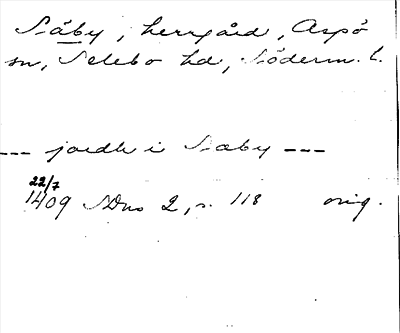 Säby, herrgård, Aspö
sn, Selebo hd, Söderm. l.
--- jordh i Saby ---
22/7
1409 SDns 2, s. 118 orig.